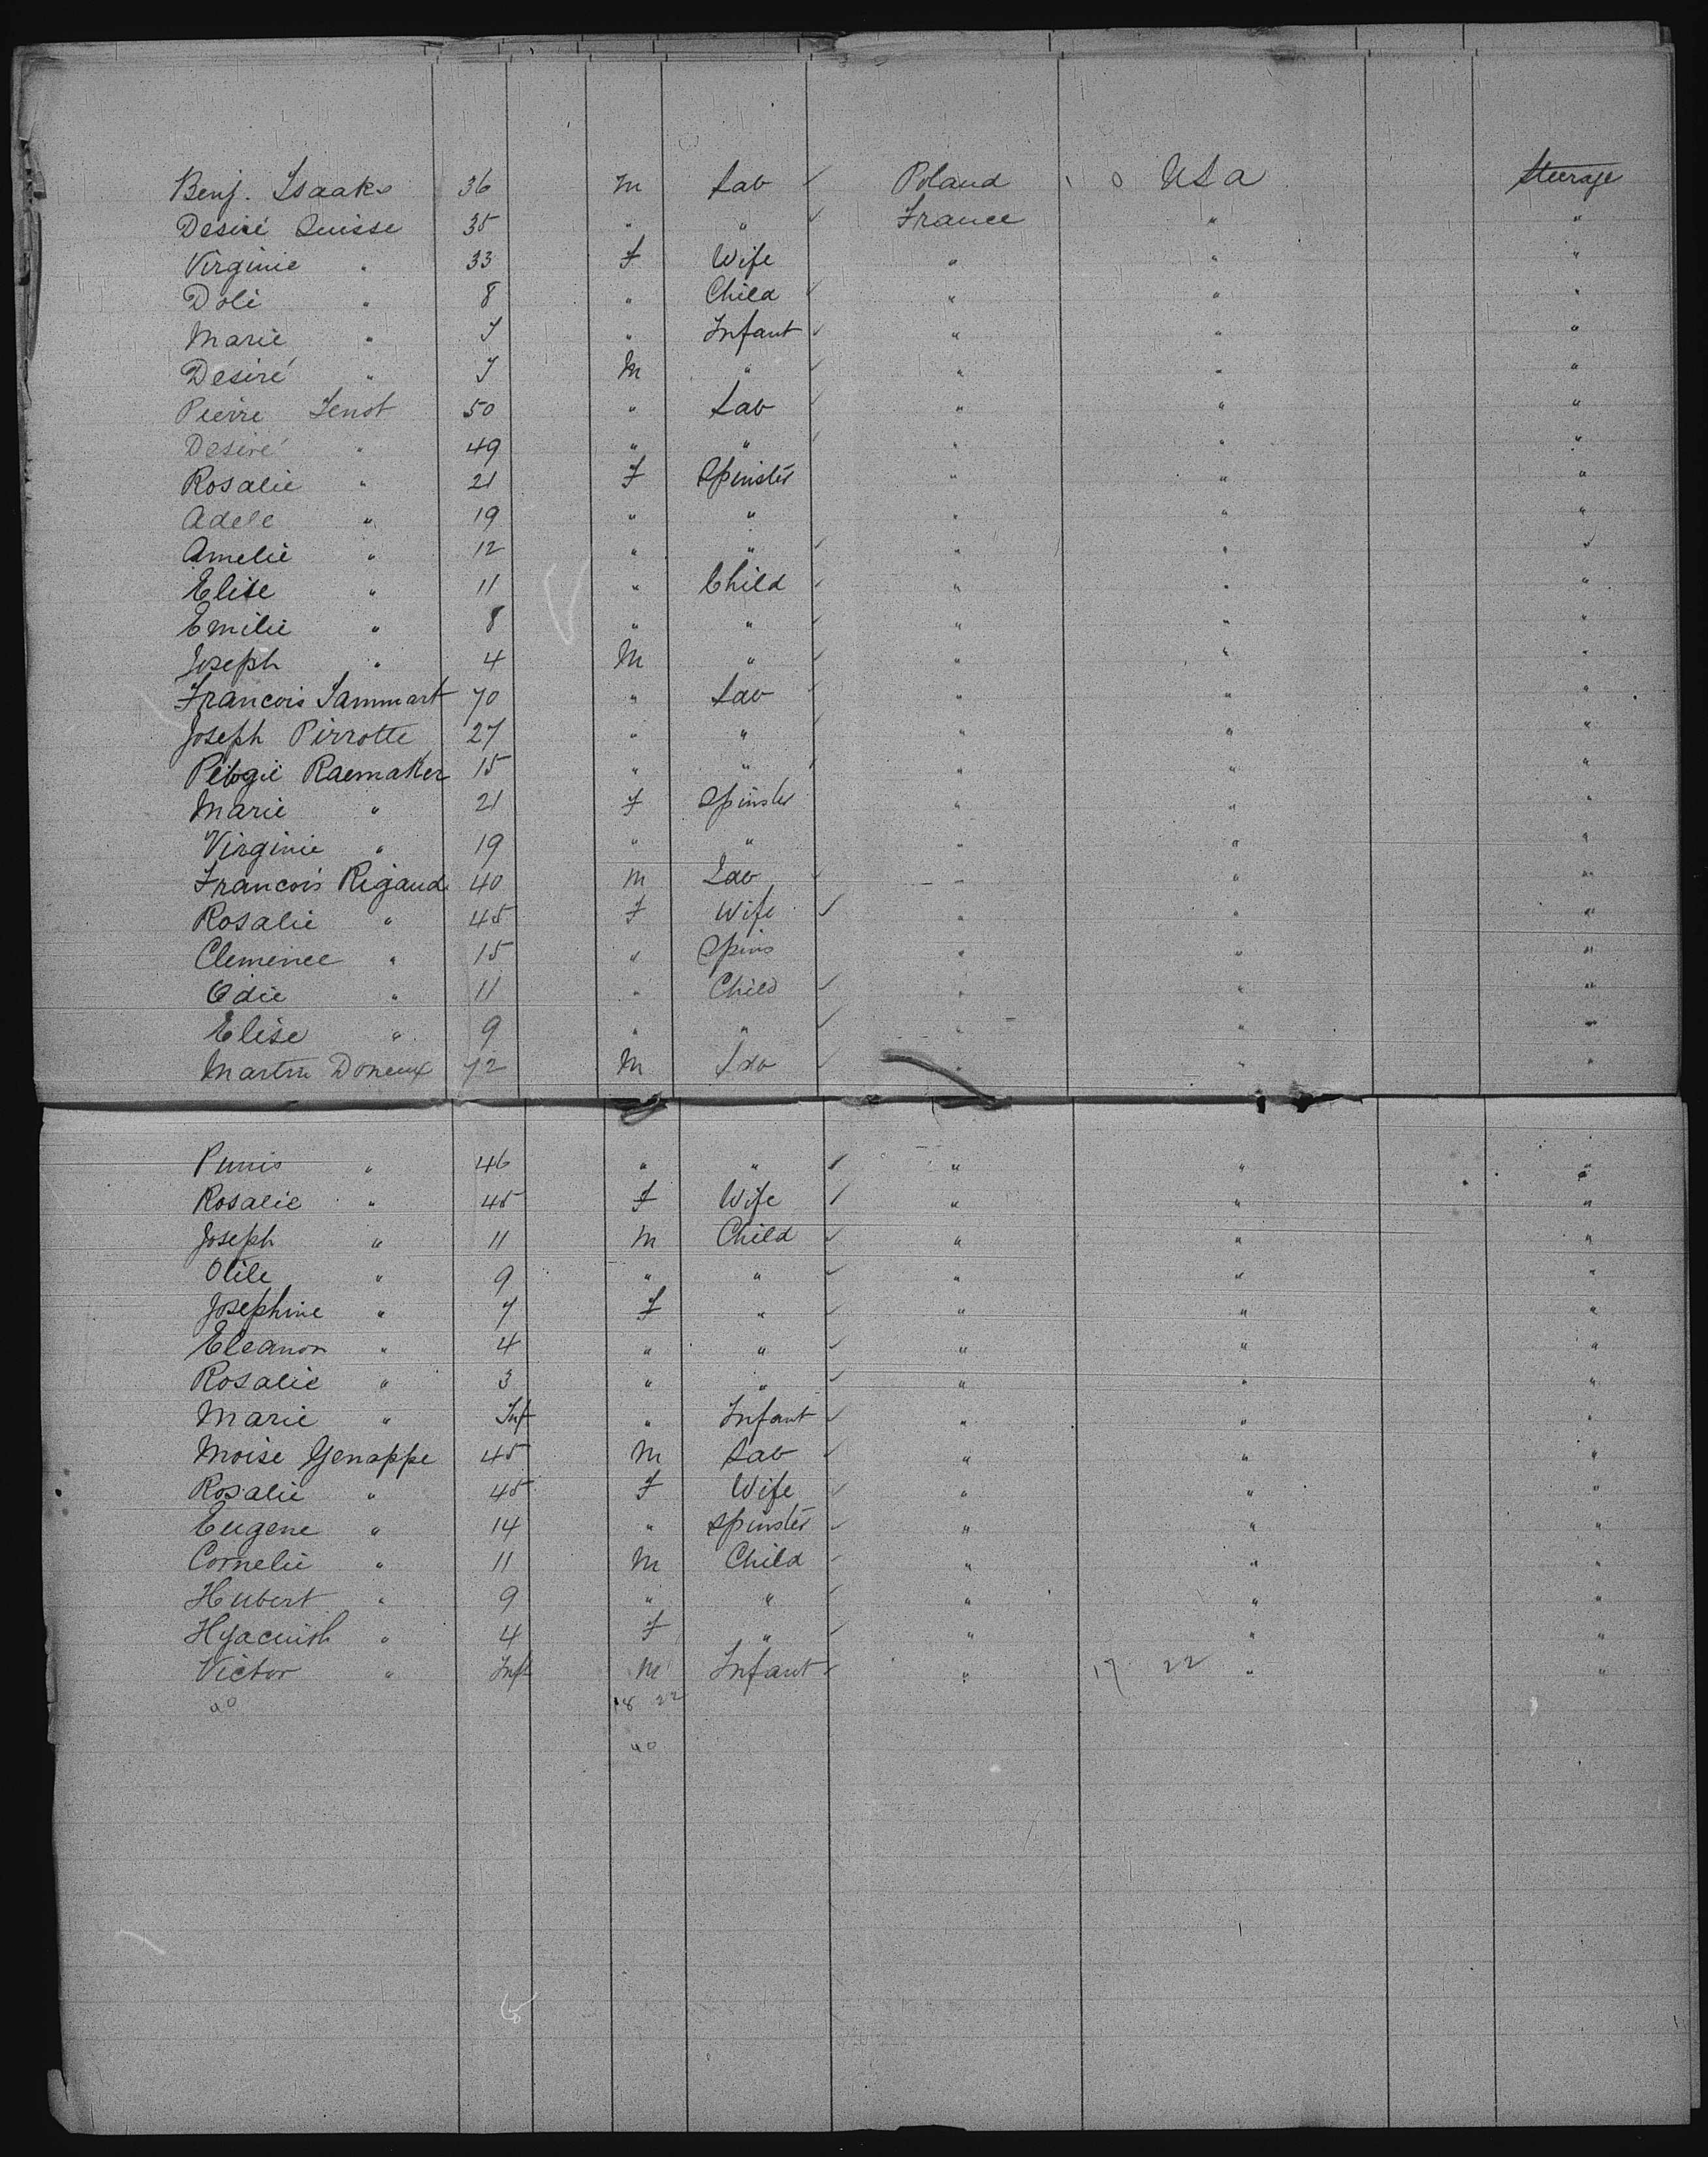 Benj. Isaaks 36 M Lab ✓ Poland 1 0 USA Steerage
Desiré Suisse 35 " " ✓ France " "
Virginie " 33 F Wife " " "
Doli " 8 " Child ✓ " " "
Marie " I " Infant ✓ " " "
Desiré " I M " ✓ " " "
Pierre Lenot 50 " Lab ✓ " " "
Desiré " 49 " " ✓ " " "
Rosalie " 21 F Spinster " " "
Adele " 19 " " " " "
Amelie " 12 " " ✓ " " "
Elise " 11 " Child ✓ " " "
Emilie " 8 " " ✓ " " "
Joseph " 4 M " ✓ " " "
Francois Lammart 70 " Lab ✓ " " "
Joseph Pirrotte 27 " " ✓ " " "
Raemaker 15 " " ✓ " " "
Marie " 21 F Spinster " " "
Virginie " 19 " " " " "
Francois Rigaud 40 M Lab ✓ " " "
Rosalie " 45 F Wife ✓ " " "
Clemence " 15 " Spins " " "
Odie " 11 " Child ✓ " " "
Elise " 9 " " ✓ " " "
Martin Doneux 72 M Lab ✓ " " "
" 46 " " ✓ " " "
Rosalie " 45 F Wife ✓ " " "
Joseph " 11 M Child ✓ " " "
Otile " 9 " " ✓ " " "
Josephine " 7 F " ✓ " " "
Eleanor " 4 " " ✓ " " "
Rosalie " 3 " " ✓ " " "
Marie " Inf " Infant ✓ " " "
Moise Genappe 45 M Lab ✓ " " "
Rosalie " 45 F Wife ✓ " " "
Eugene " 14 " Spinster ✓ " " "
Cornelie " 11 M Child ✓ " " "
Hubert " 9 " " ✓ " " "
Hyacinth " 4 F " ✓ " " "
Victor " Inf M Infant ✓ " 17 22 " "
40 18 22
40